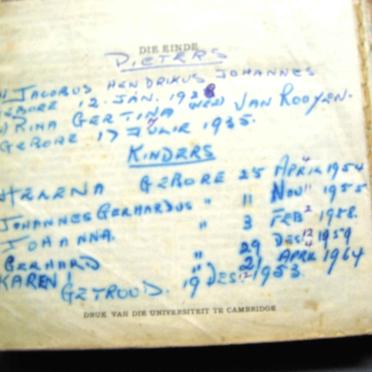 DIE EINDE
PIETERS
JACOBUS HENDRIKUS JOHANNES
GEBORE 12. JAN. 1928
RINA GERTINA VAN ROOYEN.
GEBORE 17 JULIE 1935.
KINDERS
HELENA GEBORE 25 APRIL 4 1954
JOHANNES GERHARDUS " 11 NOV 11 1955
JOHANNA. " 3 FEB 2 1958.
GERHARD " 29 DES 12 1959
KAREN " 2 APRIL 4 1964
GETROUD. 19 DES 12 1953.
DRUK VAN DIE UNIVERSITEIT TE CAMBRIDGE